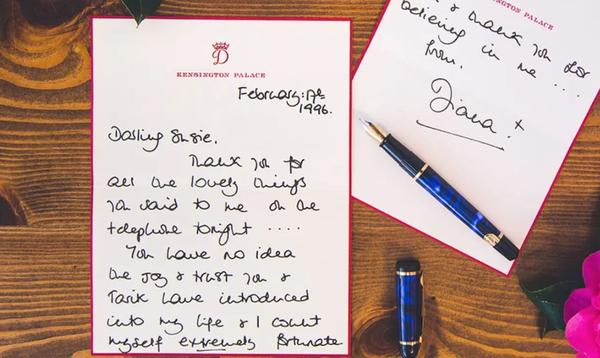 D
KENSINGTON PALACE
February: 17th
1996.
Darling Susie,
Thank you for
all the lovely things
you said to me on the
telephone tonight ....
You have no idea
the joy & trust you &
Tarik have introduced
into my life & I count
myself extremely fortunate
KENSINGTON PALACE
& thank you for
believing in me ...
from,
Diana. x